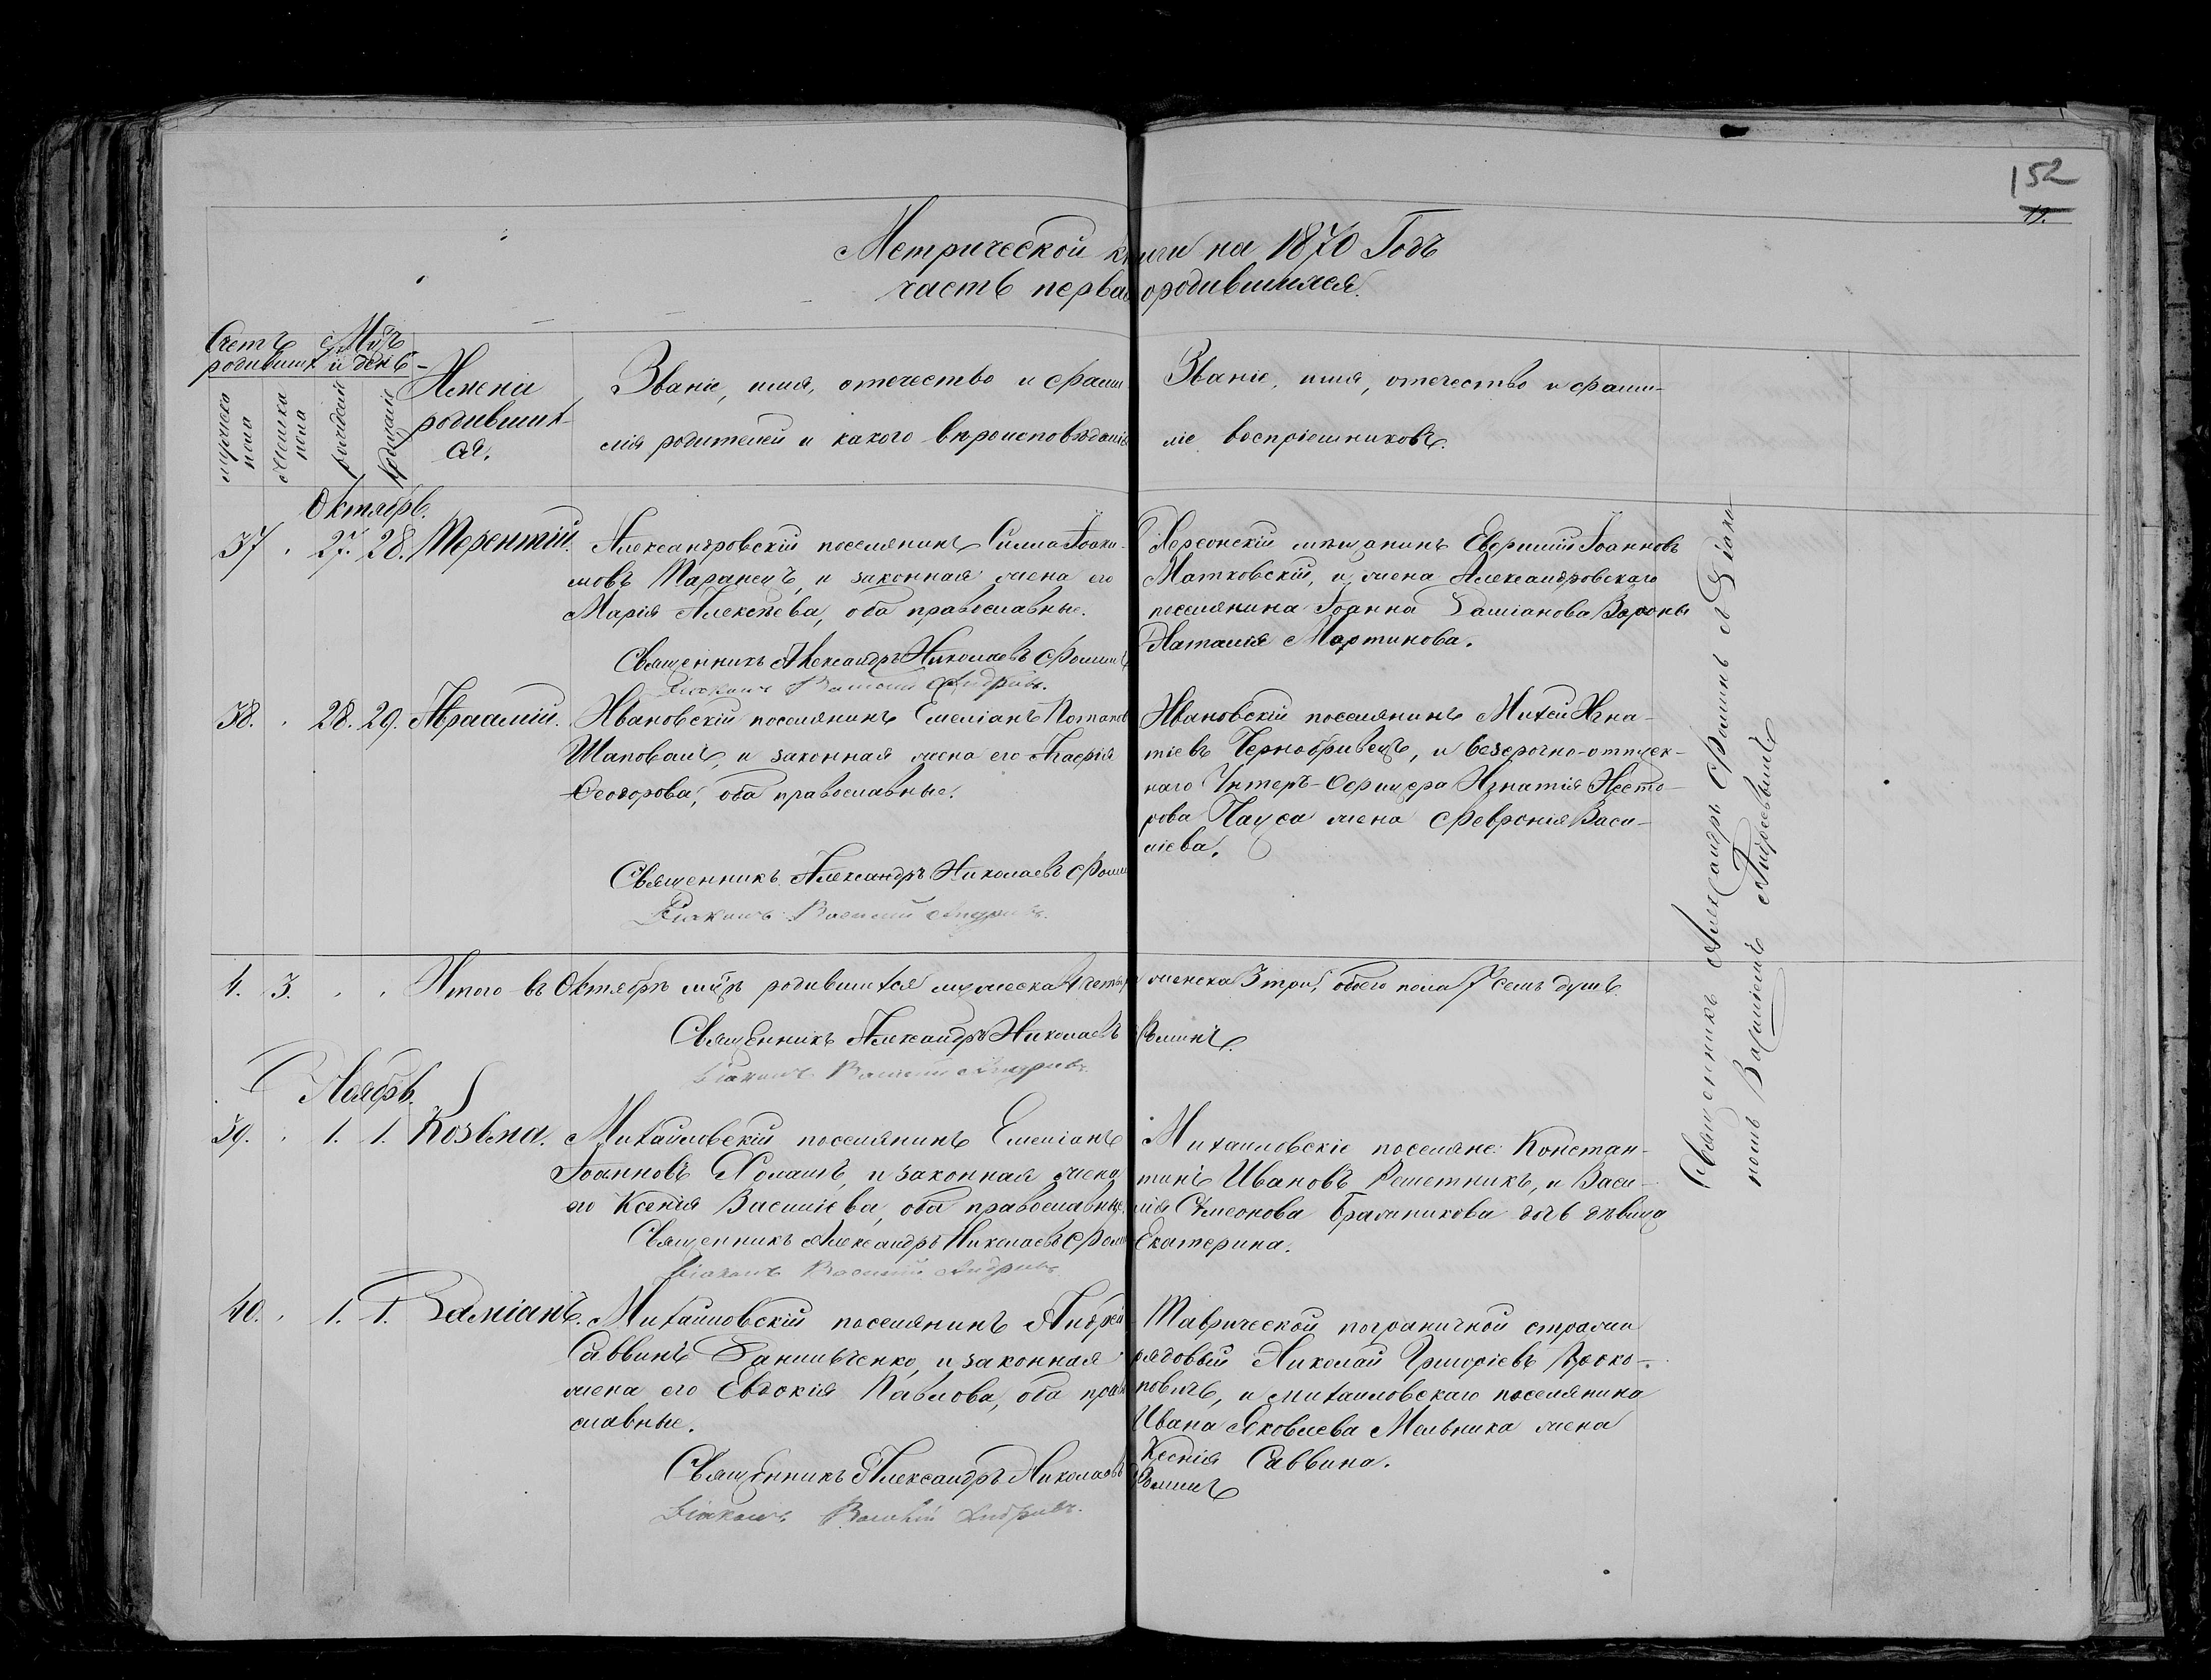 152
19.
Метрической книги на 1870 Годъ
часть первая о родившихся.
Счетъ родившихся
Мцъ и день
мужеска пола
женска пола
рожденія
крещенія
Имена родившихся.
Званіе, имя, отечество и фамилія родителей и какого вѣроисповѣданія
Званіе, имя, отечество и фамиліе воспріемниковъ.
Октябрь.
37 . 27. 28. Терентій.
Александровскій поселянинъ Силла Іоаки-
мовъ Таранецъ, и законная жена его
Марія Алексѣева, оба православные.
Священникъ Александръ Николаевъ Фоминъ
Діаконъ Василій Андріевъ.
Херсонскій мѣщанинъ Евфимій Іоанновъ
Матковскій, и жена Александровскаго
поселянина Іоанна Даміанова Вороны
Наталія Мартинова.
38. . 28. 29. Авраамій.
Ивановскій поселянинъ Емеліанъ Потаповъ
Шаповалъ, и законная жена его Агафія
Феодорова, оба православные.
Священникъ Александръ Николаевъ Фоминъ
Діаконъ Василій Андріевъ.
Ивановскій поселянинъ Михей Игна-
тіевъ Чернобривецъ, и безсрочно-отпуск-
наго Унтеръ-Офицера Игнатія Несто-
рова Чауса жена Февронія Васи-
ліева.
4. 3. . . Итого въ Октябрѣ мцѣ родившихся мужеска 4 четыре, женска 3 три, обоего пола 7 семь душъ.
Священникъ Александръ Николаевъ Фоминъ.
Діаконъ Василій Андріевъ.
Ноябрь.
39. . 1. 1. Козьма.
Михайловскій поселянинъ Емеліанъ
Іоанновъ Хомашъ, и законная жена
его Ксенія Василіева, оба православные.
Священникъ Александръ Николаевъ Фоминъ
Діаконъ Василій Андріевъ
Михаиловскіе поселяне: Констан-
тинъ Ивановъ Решетникъ, и Васи-
лія Симеонова Бражникова дочь дѣвица
Екатерина.
40. . 1. 1. Даміанъ.
Михайловскій поселянинъ Андрей
Саввинъ Данильченко, и законная
жена его Евдокія Павлова, оба право-
славные.
Священникъ Александръ Николаевъ Фоминъ
Діаконъ Василій Андріевъ.
Таврической пограничной стражи
рядовый Николай Григоріевъ Проко-
повичъ, и михаиловскаго поселянина
Ивана Яковлева Мельника жена
Ксенія Саввина.
Священникъ Александръ Фоминъ съ Діако-
номъ Василіемъ Андреевымъ